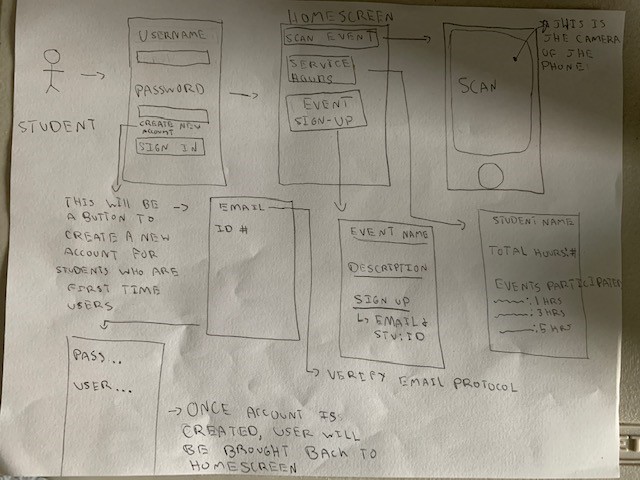 HOMESCREEN
STUDENT
USERNAME
PASSWORD
CREATE NEW
ACCOUNT
SIGN IN
SCAN EVENT
SERVICE
HOURS
EVENT
SIGN-UP
SCAN
THIS IS
THE CAMERA
OF THE
PHONE!
THIS WILL BE
A BUTTON TO
CREATE A NEW
ACCOUNT FOR
STUDENTS WHO ARE
FIRST TIME
USERS
EMAIL
ID #
EVENT NAME
DESCRIPTION
SIGN UP
EMAIL &
STU: ID
STUDENT NAME
TOTAL HOURS: #
EVENTS PARTICIPATED
: 1 HRS
: 3 HRS
: 5 HRS
VERIFY EMAIL PROTOCOL
PASS...
USER...
ONCE ACCOUNT IS
CREATED, USER WILL
BE BROUGHT BACK TO
HOMESCREEN